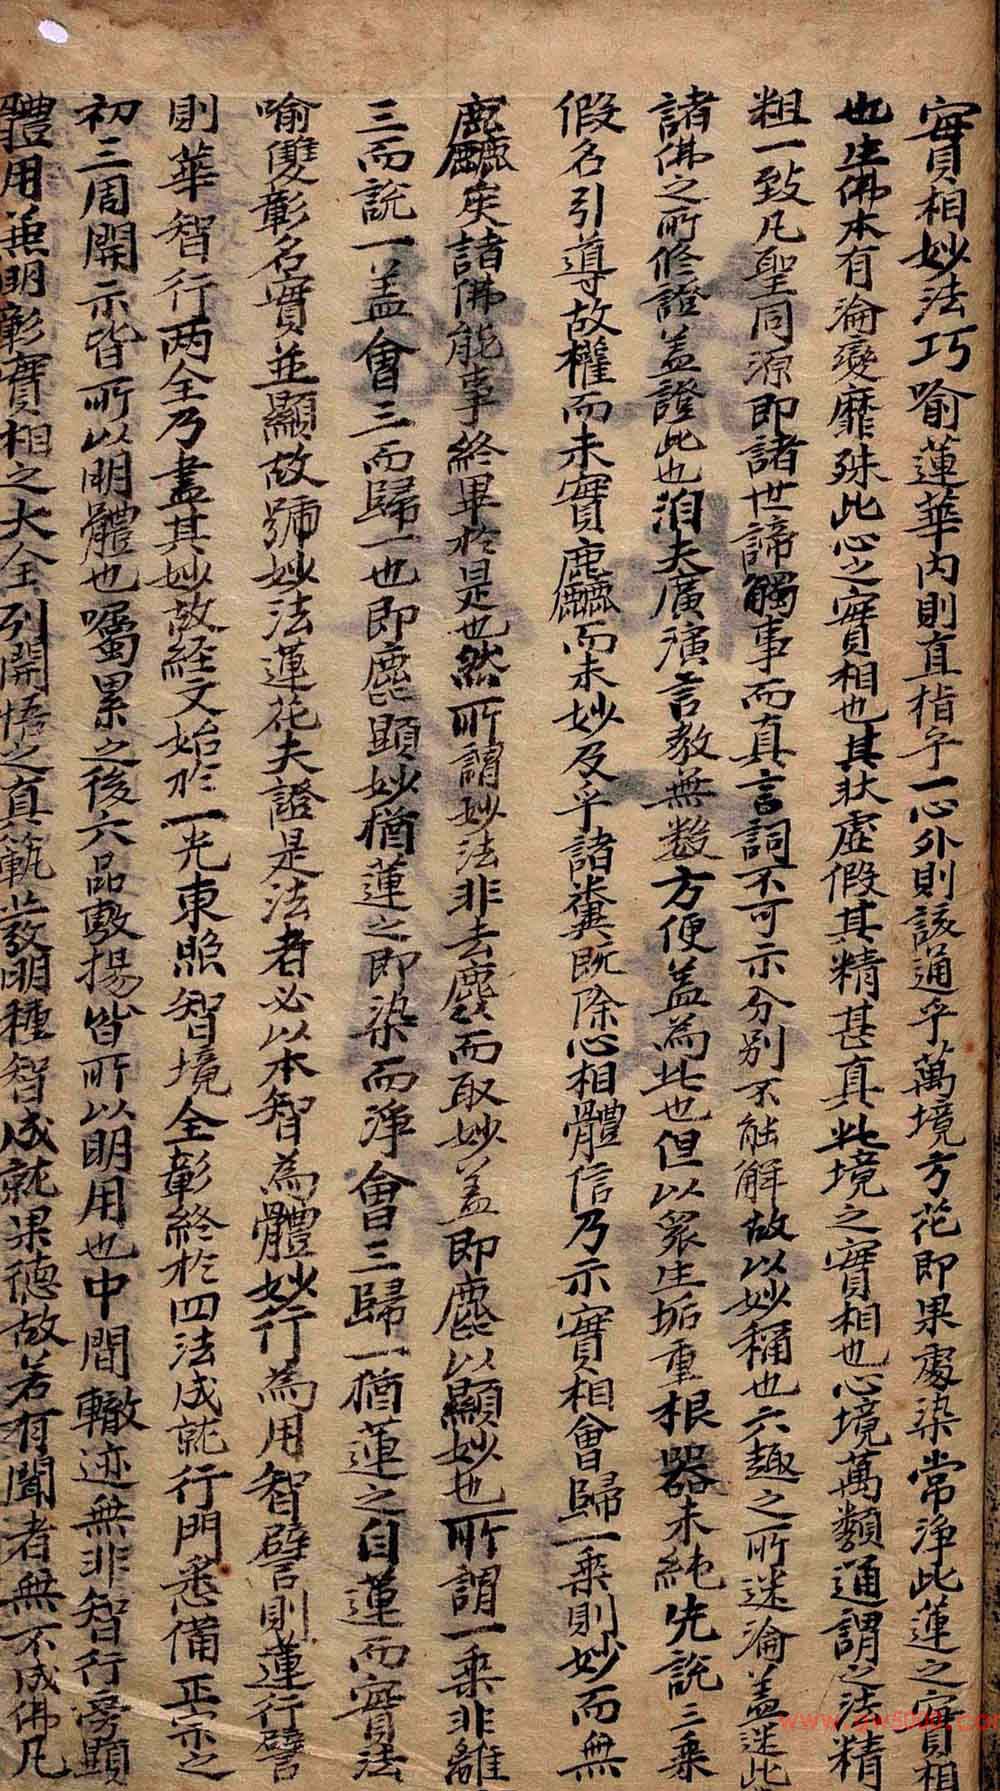 實相妙法巧喻蓮華内則直指乎一心外則該通乎萬境方花即果處染常淨此蓮之實相
也生佛本有淪變靡殊此心之實相也其狀虛假其精甚真此境之實相也心境萬類通謂之法精
粗一致凡聖同源即諸世諦觸事而真言詞不可示分別不能解故以妙稱也六趣之所迷淪盖迷此
諸佛之所修證盖證此也洎夫廣演言教無數方便盖為此也但以衆生垢重根器未純先說三乘
假名引導故權而未實麤而未妙及乎諸糞既除心相體信乃示實相會歸一乘則妙而無
麤矣諸佛能事終畢於是也然所謂妙法非去麤而取妙盖即麤以顯妙也所謂一乘非離
三而說一盖會三而歸一也即麤顯妙猶蓮之即染而淨會三歸一猶蓮之自蓮而實法
喻雙彰名實並顯故號妙法蓮花夫證是法者必以本智為體妙行為用智譬則蓮行譬
則華智行两全乃盡其妙故経文始於一光東照智境全彰終於四法成就行門悉備正宗之
初三周開示皆所以明體也囑累之後六品敷揚皆所以明用也中間轍迹無非智行旁顯
體用兼明彰實相之大全列開悟之真軌發明種智成就果德故若有聞者無不成佛凡
www.gw5000.com